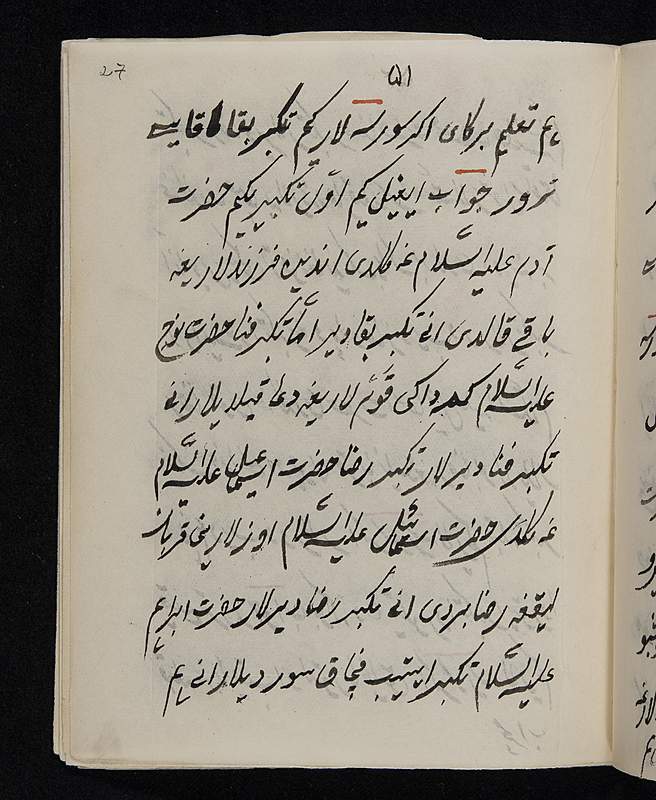 27
۵۱
هم تعلیم برکای اکر سورسه لار کیم تکبر بقا قایسی
تورور جواب ایغیل کیم اول تکبیر یکیم حضرت
آدم علیه السلام غه کلدی اندین فرزندلاریغه
باقی قالدی انی تکبر بقا دیر اما تکبر فنا حضرت نوح
علیه السلام داکی قوم لاریغه دعا قیلدیلار انی
تکبر فنا دیرلار تکبر رضا حضرت اسمعیل علیه السلام
غه کلدی حضرت اسمعیل علیه السلام اوزلارینی قربان
لیققه رضا بردی انی تکبر رضا دیرلار حضرت ابراهیم
علیه السلام تکبر ایتیب پچاق سوردیلار انی هم